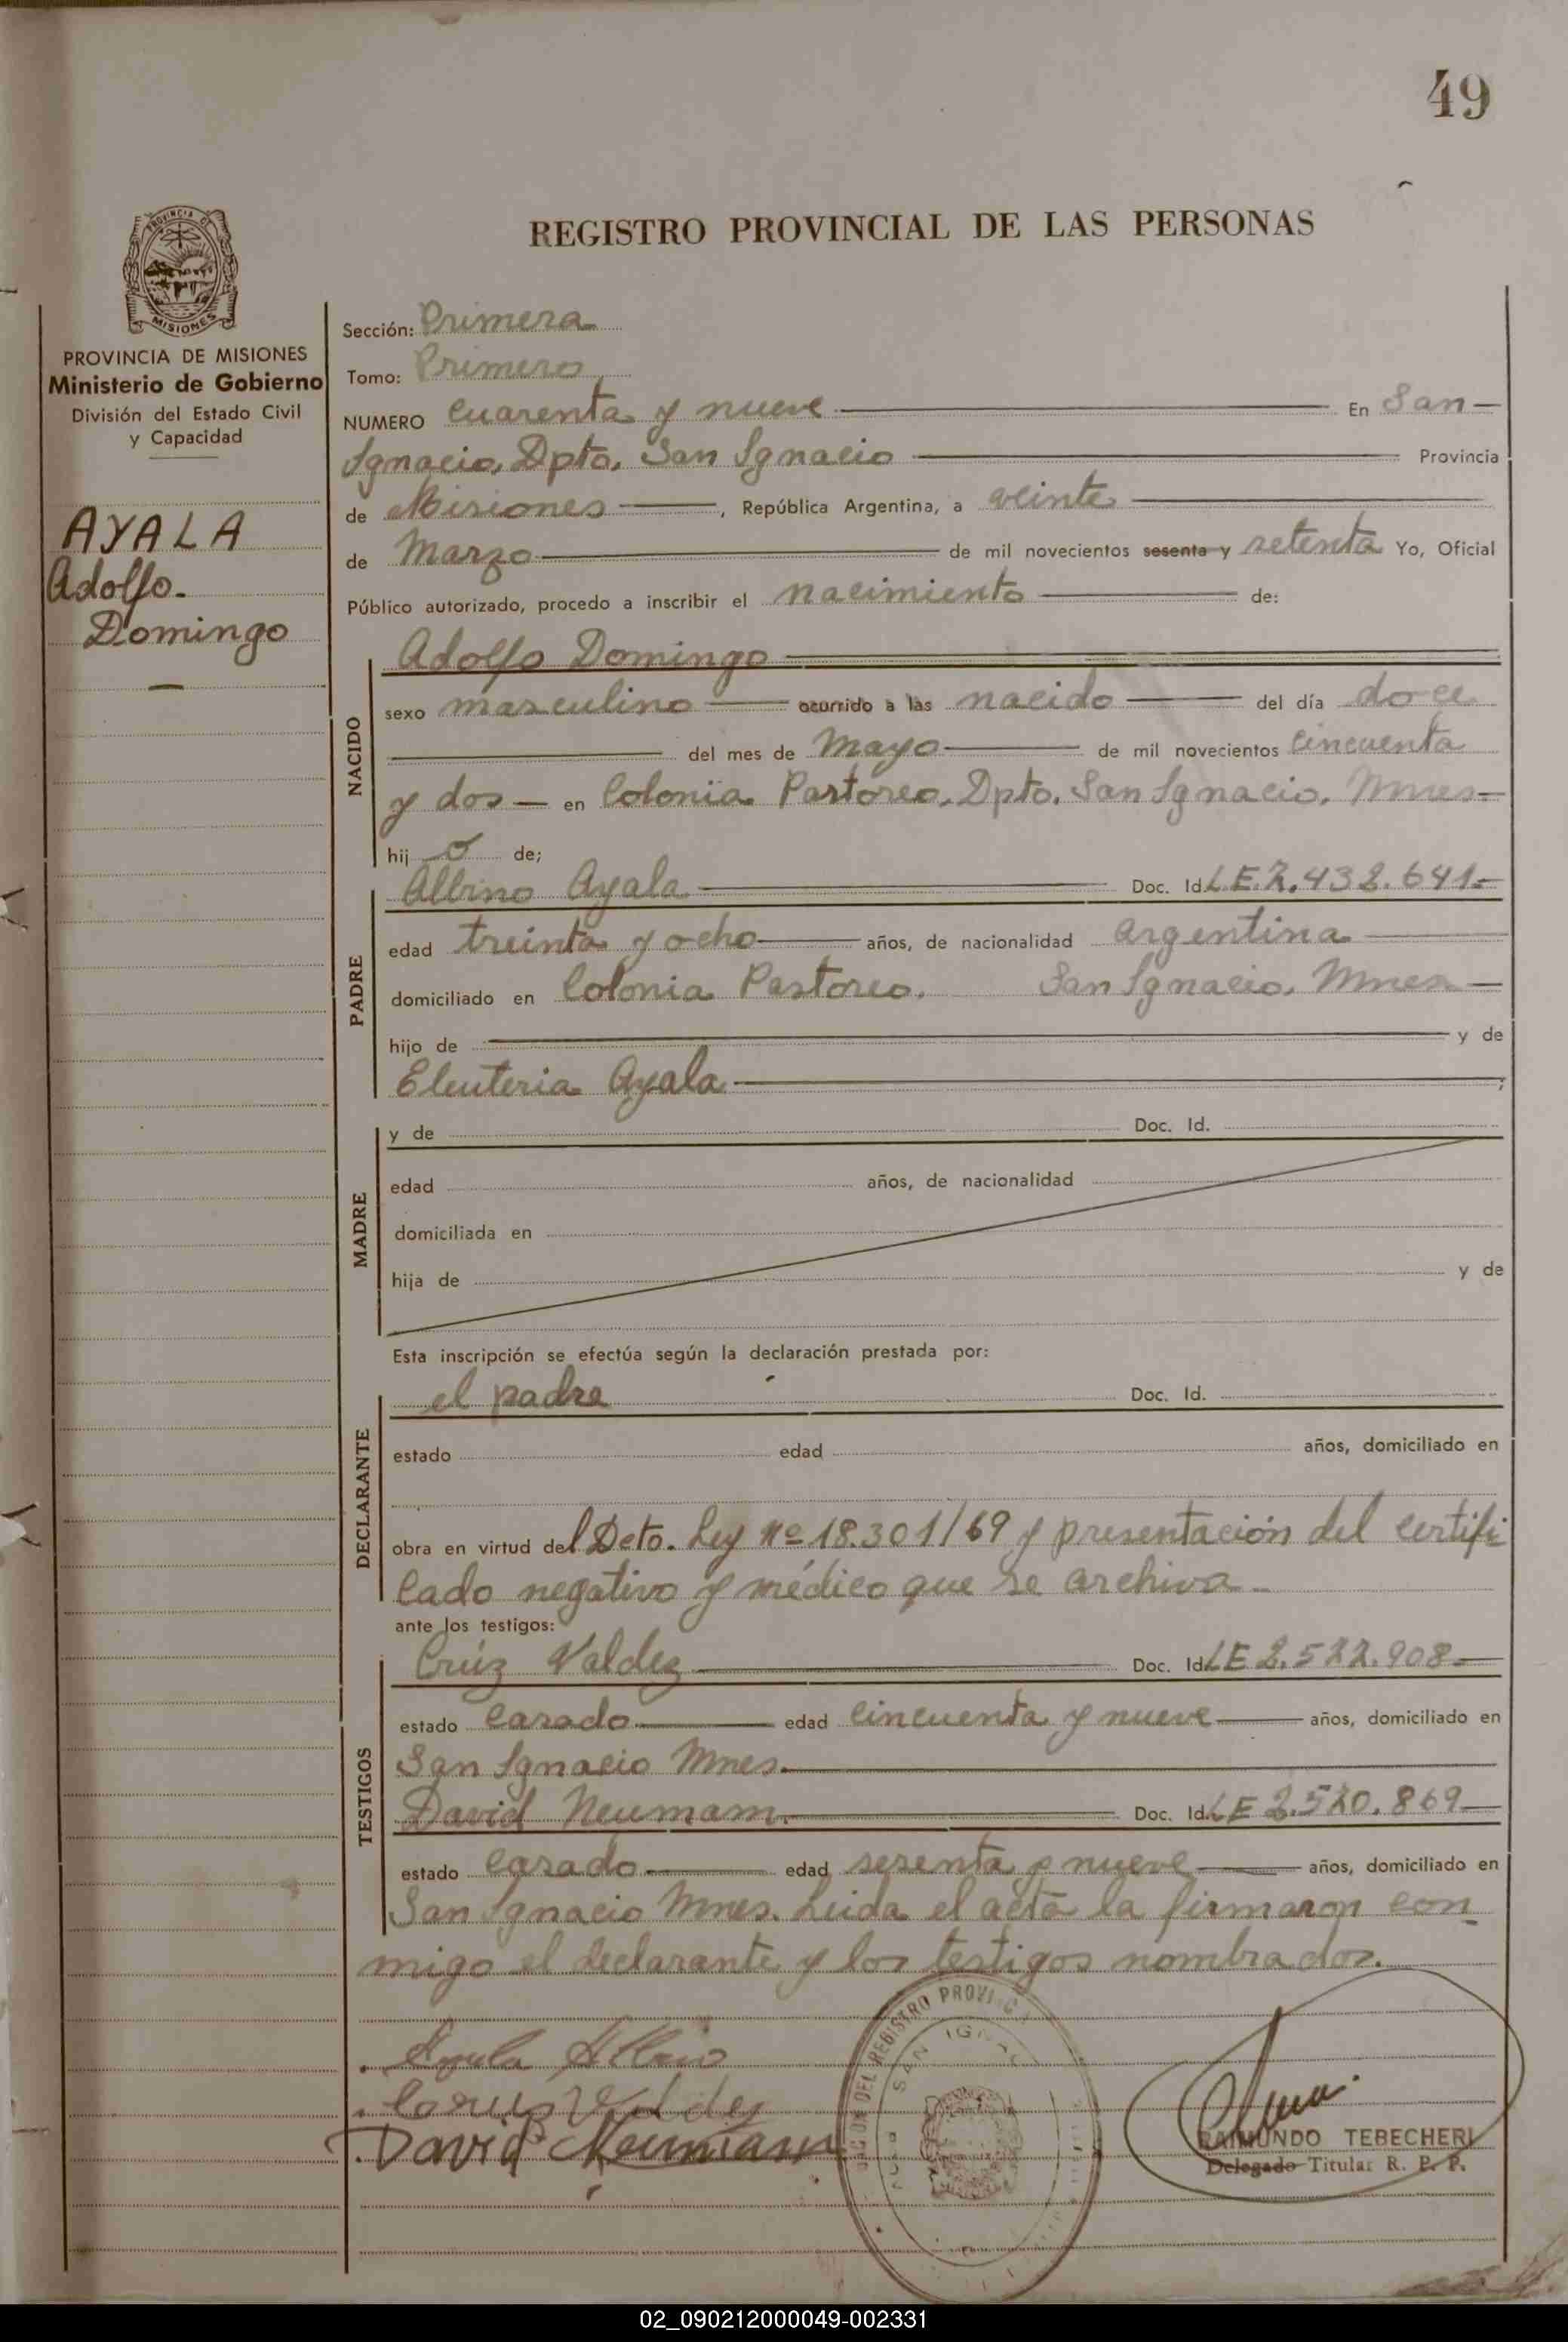 49
REGISTRO PROVINCIAL DE LAS PERSONAS
PROVINCIA DE MISIONES
Ministerio de Gobierno
División del Estado Civil
y Capacidad
AYALA
Adolfo
Domingo
Sección: Primera
Tomo: Primero
NUMERO Cuarenta y nueve En San
Ignacio, Dpto. San Ignacio Provincia
de Misiones, República Argentina, a veinte
de Marzo de mil novecientos sesenta y setenta Yo, Oficial
Público autorizado, procedo a inscribir el nacimiento de:
NACIDO
Adolfo Domingo
sexo masculino ocurrido a las nacido del día doce
del mes de Mayo de mil novecientos cincuenta
y dos en Colonia Pastoreo, Dpto. San Ignacio, Mnes
hijo de;
PADRE
Albino Ayala Doc. Id. L.E. 2.432.641
edad treinta y ocho años, de nacionalidad argentina
domiciliado en Colonia Pastoreo. San Ignacio, Mnes
hijo de y de
Eleuteria Ayala;
MADRE
y de Doc. Id.
edad años, de nacionalidad
domiciliada en
hija de y de
Esta inscripción se efectúa según la declaración prestada por:
DECLARANTE
el padre Doc. Id.
estado edad años, domiciliado en
obra en virtud del Dcto. Ley Nº 18.301/69 y presentación del certifi
cado negativo y médico que se archiva
ante los testigos:
TESTIGOS
Crúz Valdez Doc. Id. LE 2.522.908
estado Casado edad cincuenta y nueve años, domiciliado en
San Ignacio Mnes.
David Neumam Doc. Id. LE 2.520.869
estado Casado edad sesenta y nueve años, domiciliado en
San Ignacio Mnes. Leida el acta la firmaron con
migo el declarante y los testigos nombrados.
Ayala Albino
Cruz Valdez
David Neumann
DEL REGISTRO PROVINC
SAN IGNAC
RAIMUNDO TEBECHERI
Delegado Titular R. P. P.
02_090212000049-002331